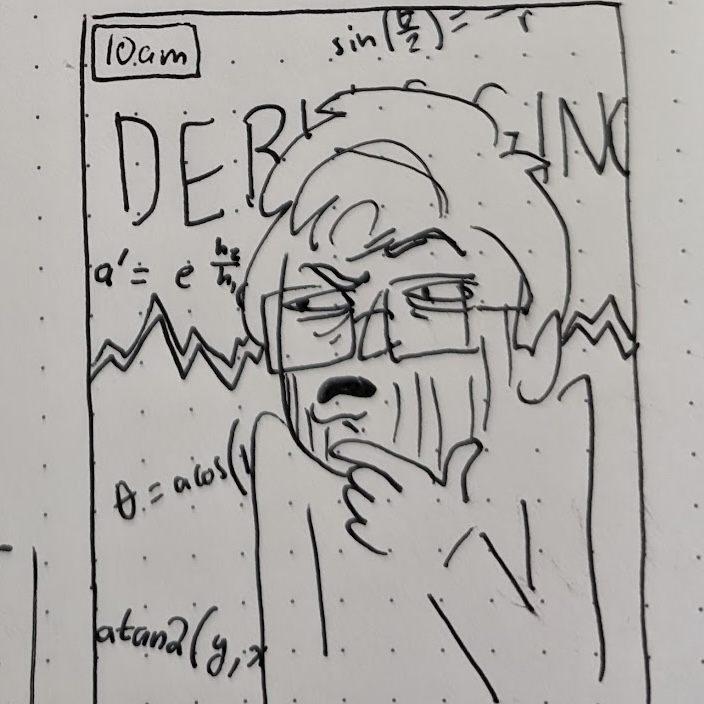 10am
sin(θ/2) = r
DEB GING
a' = e h2/h1
θ = acos(1
atan2(y, x